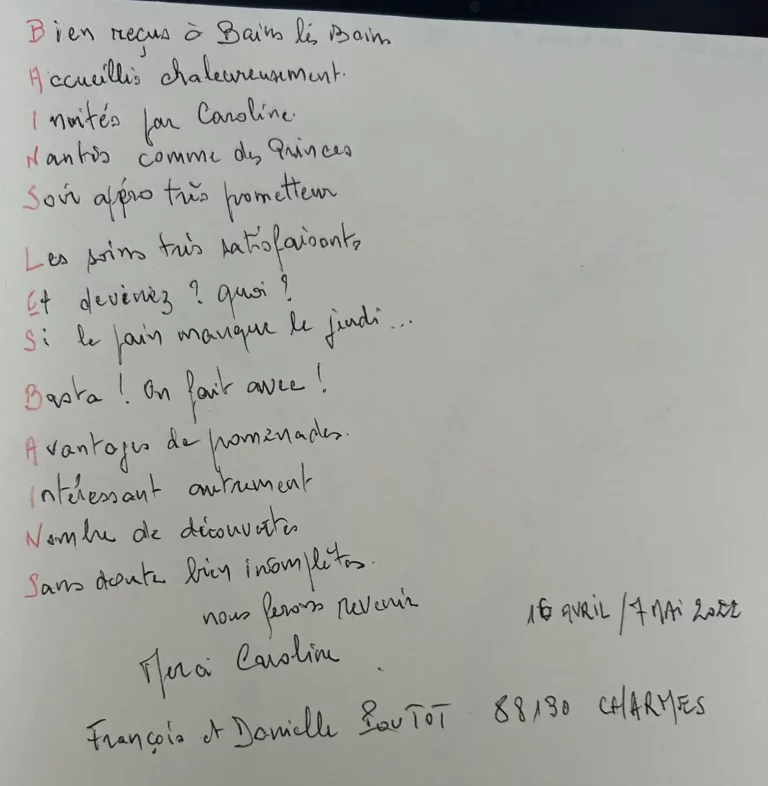 Bien reçus à Bains les Bains
Accueillis chaleureusement.
Invités par Caroline.
Nantis comme des Princes
Soir apéro très prometteur
Les soins très satisfaisants
Et devinez ? quoi ?
Si le pain manque le jeudi...
Basta ! On fait avec !
Avantages de promenades.
Intéressant autrement
Nombre de découvertes
Sans doute bien incomplètes.
nous ferons revenir
16 AVRIL / 7 MAI 2022
Merci Caroline
François et Danielle 88130 CHARMES